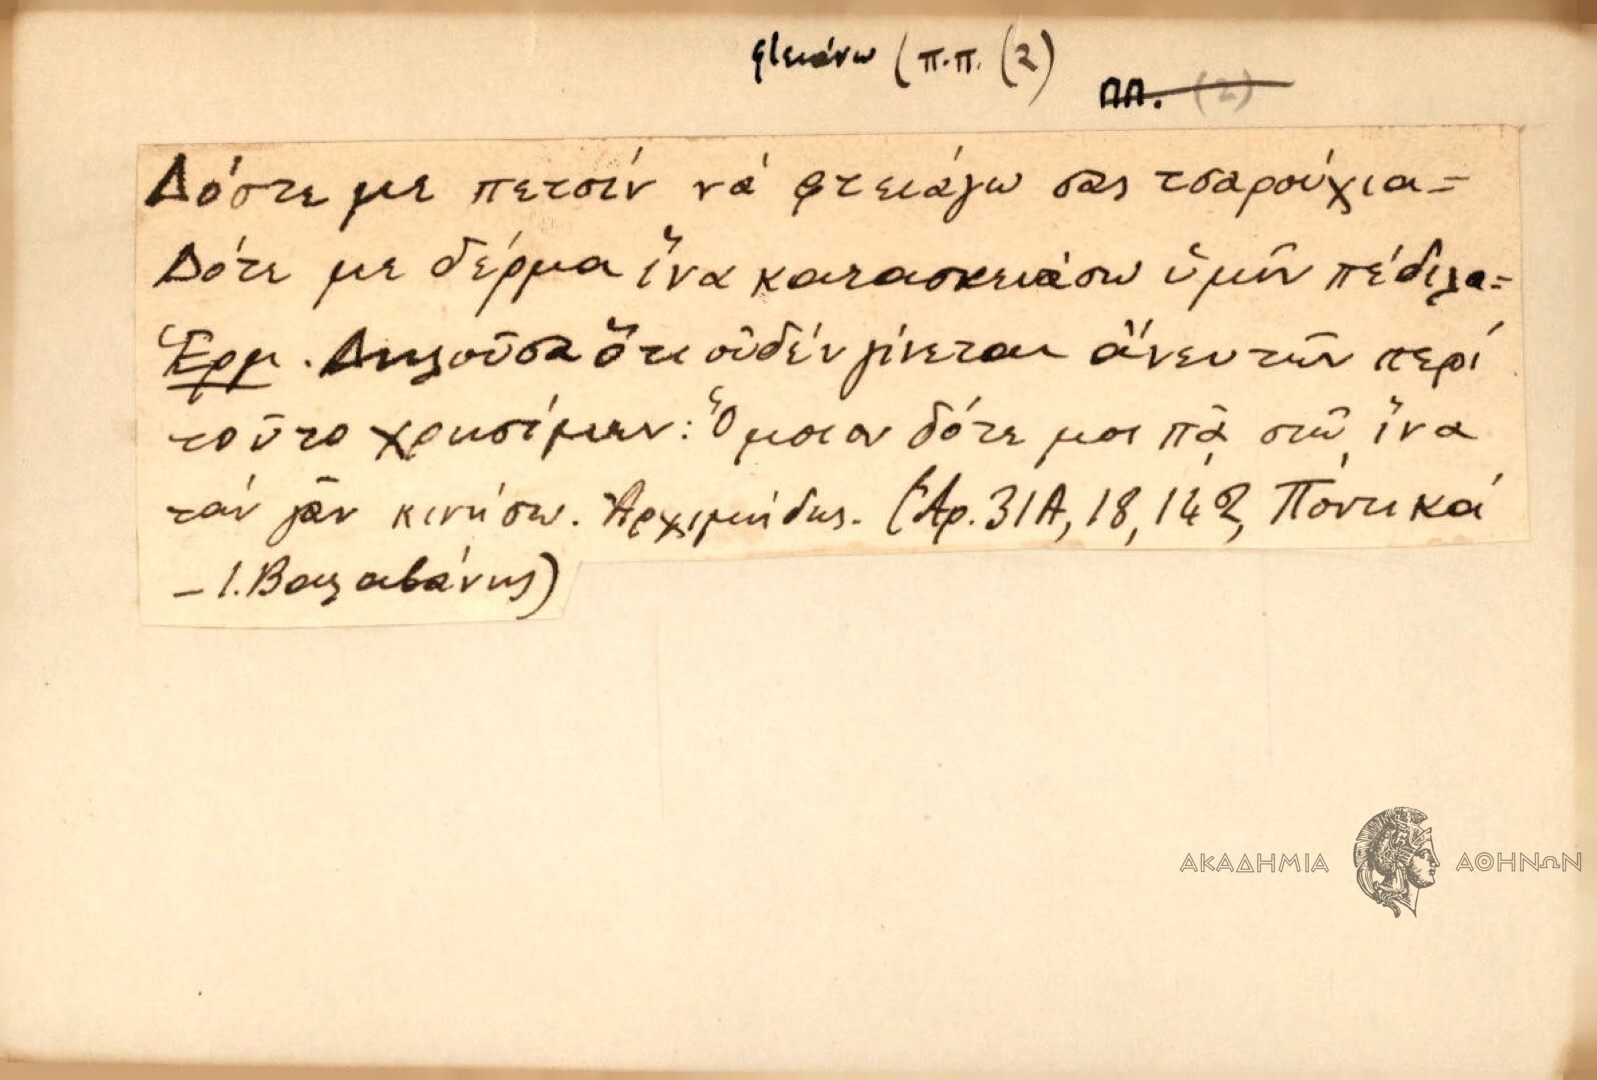 φτειάνω (π.π. (2)
ΠΠ. (2)
Δόστε με πετσίν νά φτειάγω σας τσαρούχια=
Δότε με δέρμα ἵνα κατασκευάσω ὑμῖν πέδιλα=
Ἑρμ. Δηλοῦσα ὅτι οὐδέν γίνεται ἄνευ τῶν περί
τοῦτο χρησίμων: Ὅμοιον δότε μοι πᾷ στῶ ἵνα
τάν γᾶν κινήσω. Ἀρχιμήδης. (Ἀρ. 31Α, 18, 142, Ποντικά
– Ι. Βαλαβάνης)
ΑΚΑΔΗΜΙΑ ΑΘΗΝΩΝ